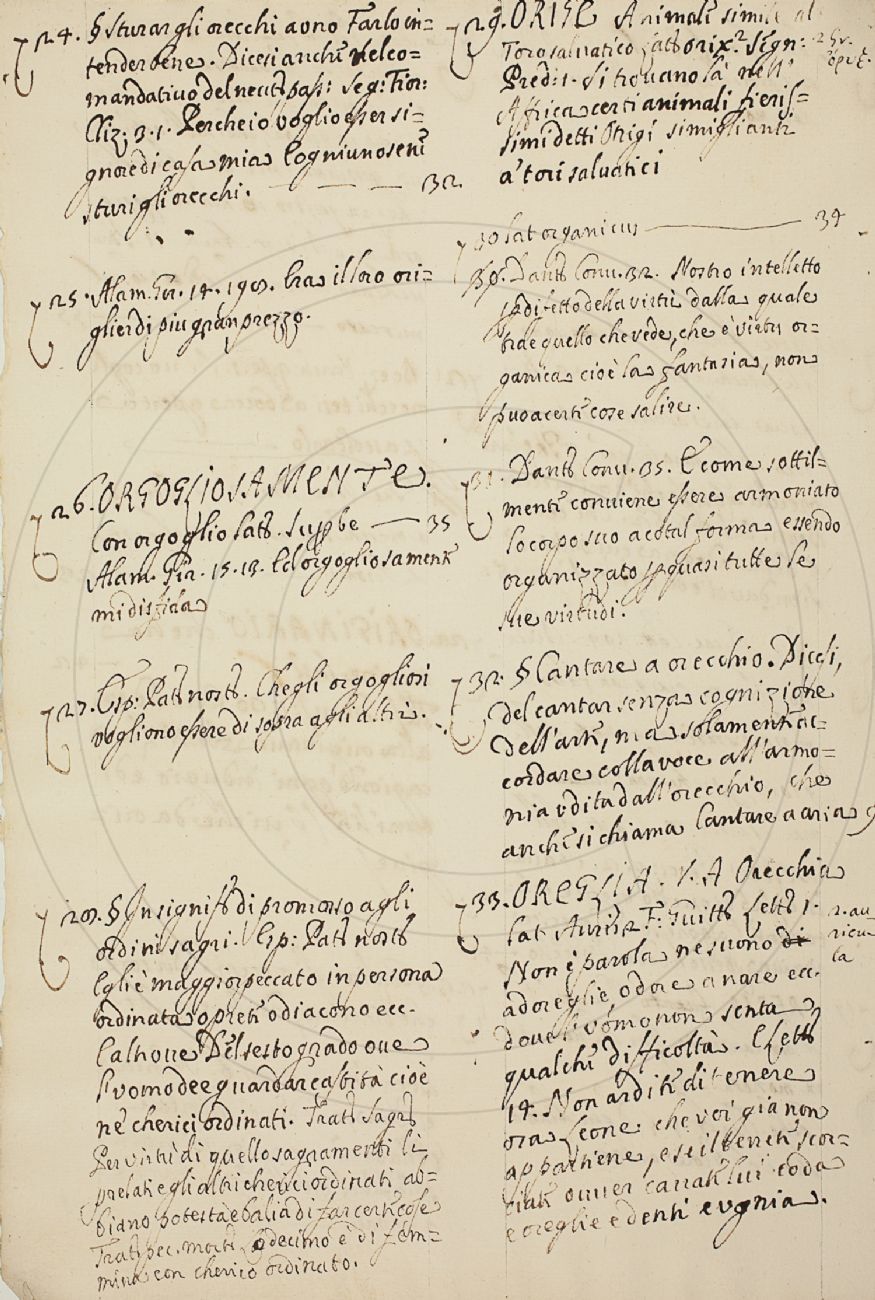 24. § Sturar gli orecchi a uno Farlo in=
tender bene. Dicesi anche nel co=
mandativo del neut: pass: Seg: Fior:
Cliz: 3. 1. Perche io voglio esser si=
gnore di casa mia E ogniuno se ne
sturi gli orecchi. — — — 32
25. Alam. Gir. 14. Era il loro ori=
glier di piu gran prezzo.
26. ORGOGLIOSAMENTE.
Con orgoglio Lat. Superbe — 35
Alam. Gir. 15. 13. Ed orgogliosamente
mi disfida
27. Esp: Pat: nost. Che gli orgogliosi
vogliono essere di sopra agli altri.
28. § In signif: di promosso agli
ordini sagri. Esp: Pat: nost:
Egli è maggior peccato in persona
ordinata o prete o diacono ecc.
E altrove Del sesto grado ove
l'vomo dee guardar castità cioè
ne' cherici ordinati. Tratt: Sagr:
Per virtù di quello sagramento li
prelati e gli altri cherici ordinati ab=
biano potestà e balia di far certe cose
Tratt: pec. mort: decimo è di fem=
mina con cherico ordinato.
29. ORIGE Animale simile al
Toro salvatico Lat: orix. Segn:
Pred: 1. Si trovano là nell'
Affrica certi animali fieris=
simi detti Origi simiglianti
a' tori salvatici
30 Lat organicus — 34
Dante Conv. 32. Nostro intelletto
per difetto della virtù dalla quale
trae quello che vede, che è virtù or=
ganica cioè la fantasia, non
puo a certe cose salire.
31. Dante Conv. 35. E come sottil=
mente conviene essere armoniato
lo corpo suo a cotal forma essendo
organizzato per quasi tutte le
sue virtudi.
32. § Cantare a orecchio. Dicesi,
del cantar senza cognizione
dell'arte, ma solamente ac=
cordare colla voce all'armo=
nia udita dall'orecchio, che
anche si chiama Cantare a aria
33. OREGLIA. V. A Orecchia
Lat. Auris F: Guitt: Lett: 1.
2. au
ricu
la
Non è parola ne suono di
ad oreglie, odore a nare ecc.
dove l'vomo non senta
qualche difficoltà. E Lett:
14. Non ardite di tenere
ora leone che voi gia non
appartiene, e se il tenete, scor=
ciate ovver cavate lui coda
e oreglie e denti e vgnia.